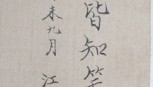 皆知笑
未九月 江